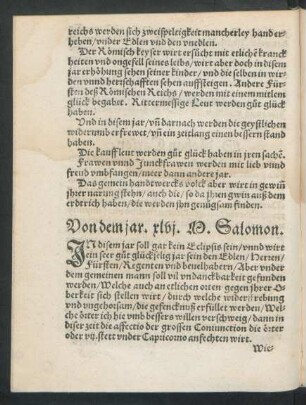 reichs werden sich zweispeltigkeit mancherley hand er-
heben/vnder Edlen vnd den vnedlen.
Der Römisch keyser wirt ersücht mit etlichē kranck
heiten vnd ongefell seines leibs/wirt aber doch in disem
jar erhöhung sehen seiner kinder/vnd die selben in wir-
den vnnd herrschafften sehen auffsteigen. Andere Für
sten deß Römischen Reichs/werden mit einem mitlem
glück begabet. Rittermessige Leut werden gůt glück
haben.
Vnd in disem jar/vñ darnach werden die geystlichen
widerumb erfrewet/vñ ein zeitlang einen bessern stand
haben.
Die kauffleut werden gůt glück haben in jren sachē.
Frawen vnnd Junckfrawen werden mit lieb vnnd
freud vmbfangen/meer dann andere jar.
Das gemein handtwercks volck aber wirt in gewiñ
jher narung stehn/auch die/so da jhren gwin auß dem
erdtrich haben/die werden jhn genůgsam finden.
Von dem jar. xlvj. M. Salomon.
IN disem jar soll gar kein Eclipsis sein/vnnd wirt
ein seer gůt glückselig jar sein den Edlen/Herren/
Fürsten/Regenten vnd beuelhabern/Aber vnder
dem gemeinen mann soll vil vndanckbarkeit gefunden
werden/Welche auch an etlichen orten gegen jhrer O-
berkeit sich stellen wirt/durch welche widerstrebung
vnd vngehorsam/die gefencknuß erfüllet werden/Wel-
che örter ich hie vmb bessers willen verschweig/dann in
diser zeit die affectio der grossen Coniunction die örter
oder vñ.stett vnder Capricorno anfechten wirt.
Wie